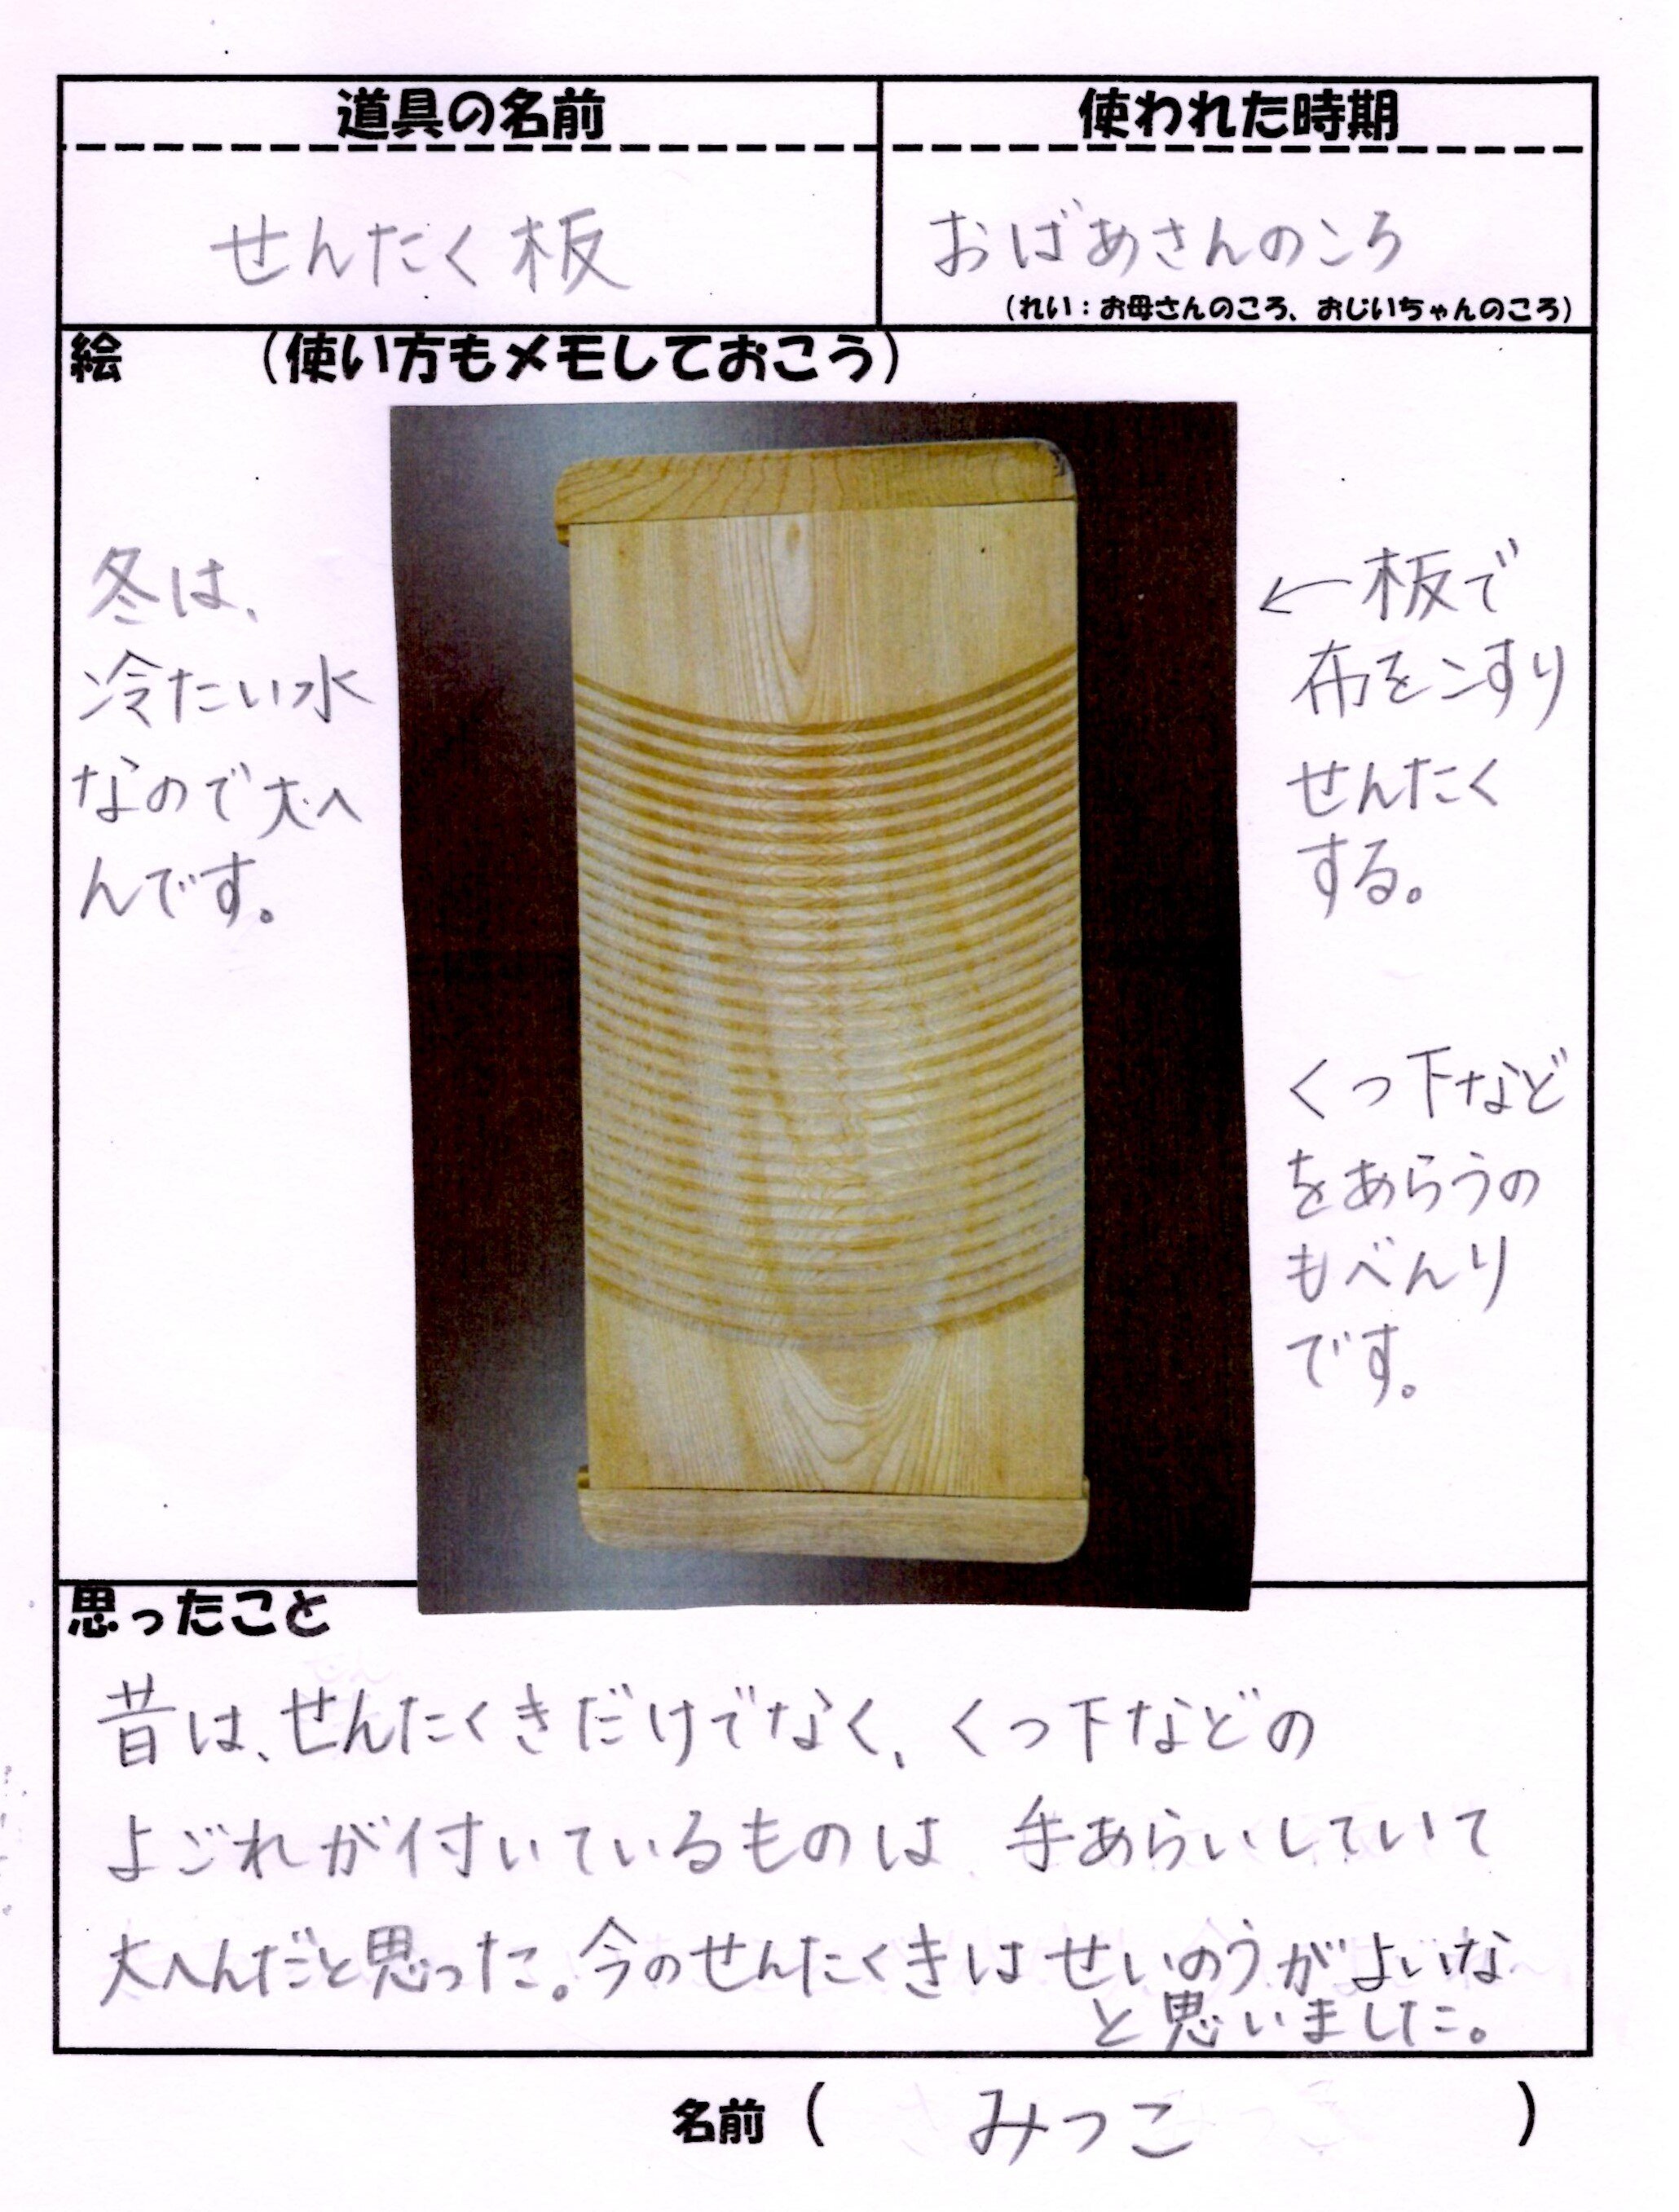 道具の名前
使われた時期
せんたく板
おばあさんのころ
(れい：お母さんのころ、おじいちゃんのころ)
絵 (使い方もメモしておこう)
冬は、
冷たい水
なので大へ
んです。
←板で
布をこすり
せんたく
する。
くつ下など
をあらうの
もべんり
です。
思ったこと
昔は、せんたくきだけでなく、くつ下などの
よごれが付いているものは、手あらいしていて
大へんだと思った。今のせんたくきはせいのうがよいな
と思いました。
名前(みつこ)